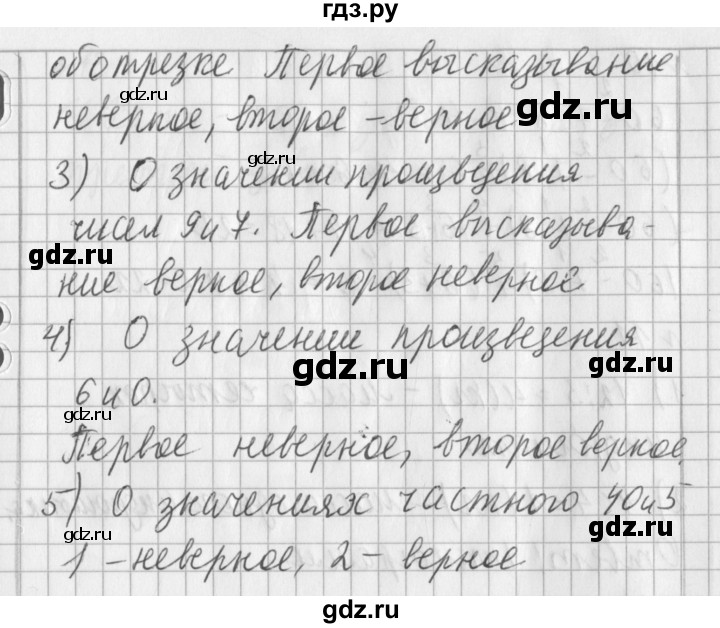 гдз.ру
об отрезке Первое высказывание
неверное, второе - верное
3) О значении произведения
чисел 9 и 7. Первое высказыва-
ние верное, второе неверное
4) О значении произведения
6 и 0.
Первое неверное, второе верное
5) О значениях частного 40 и 5
1 - неверное, 2 - верное
gdz.ru
gdz.ru
gdz.ru
gdz.ru
gdz.ru
gdz.ru
gdz.ru
gdz.ru
gdz.ru
gdz.ru
gdz.ru